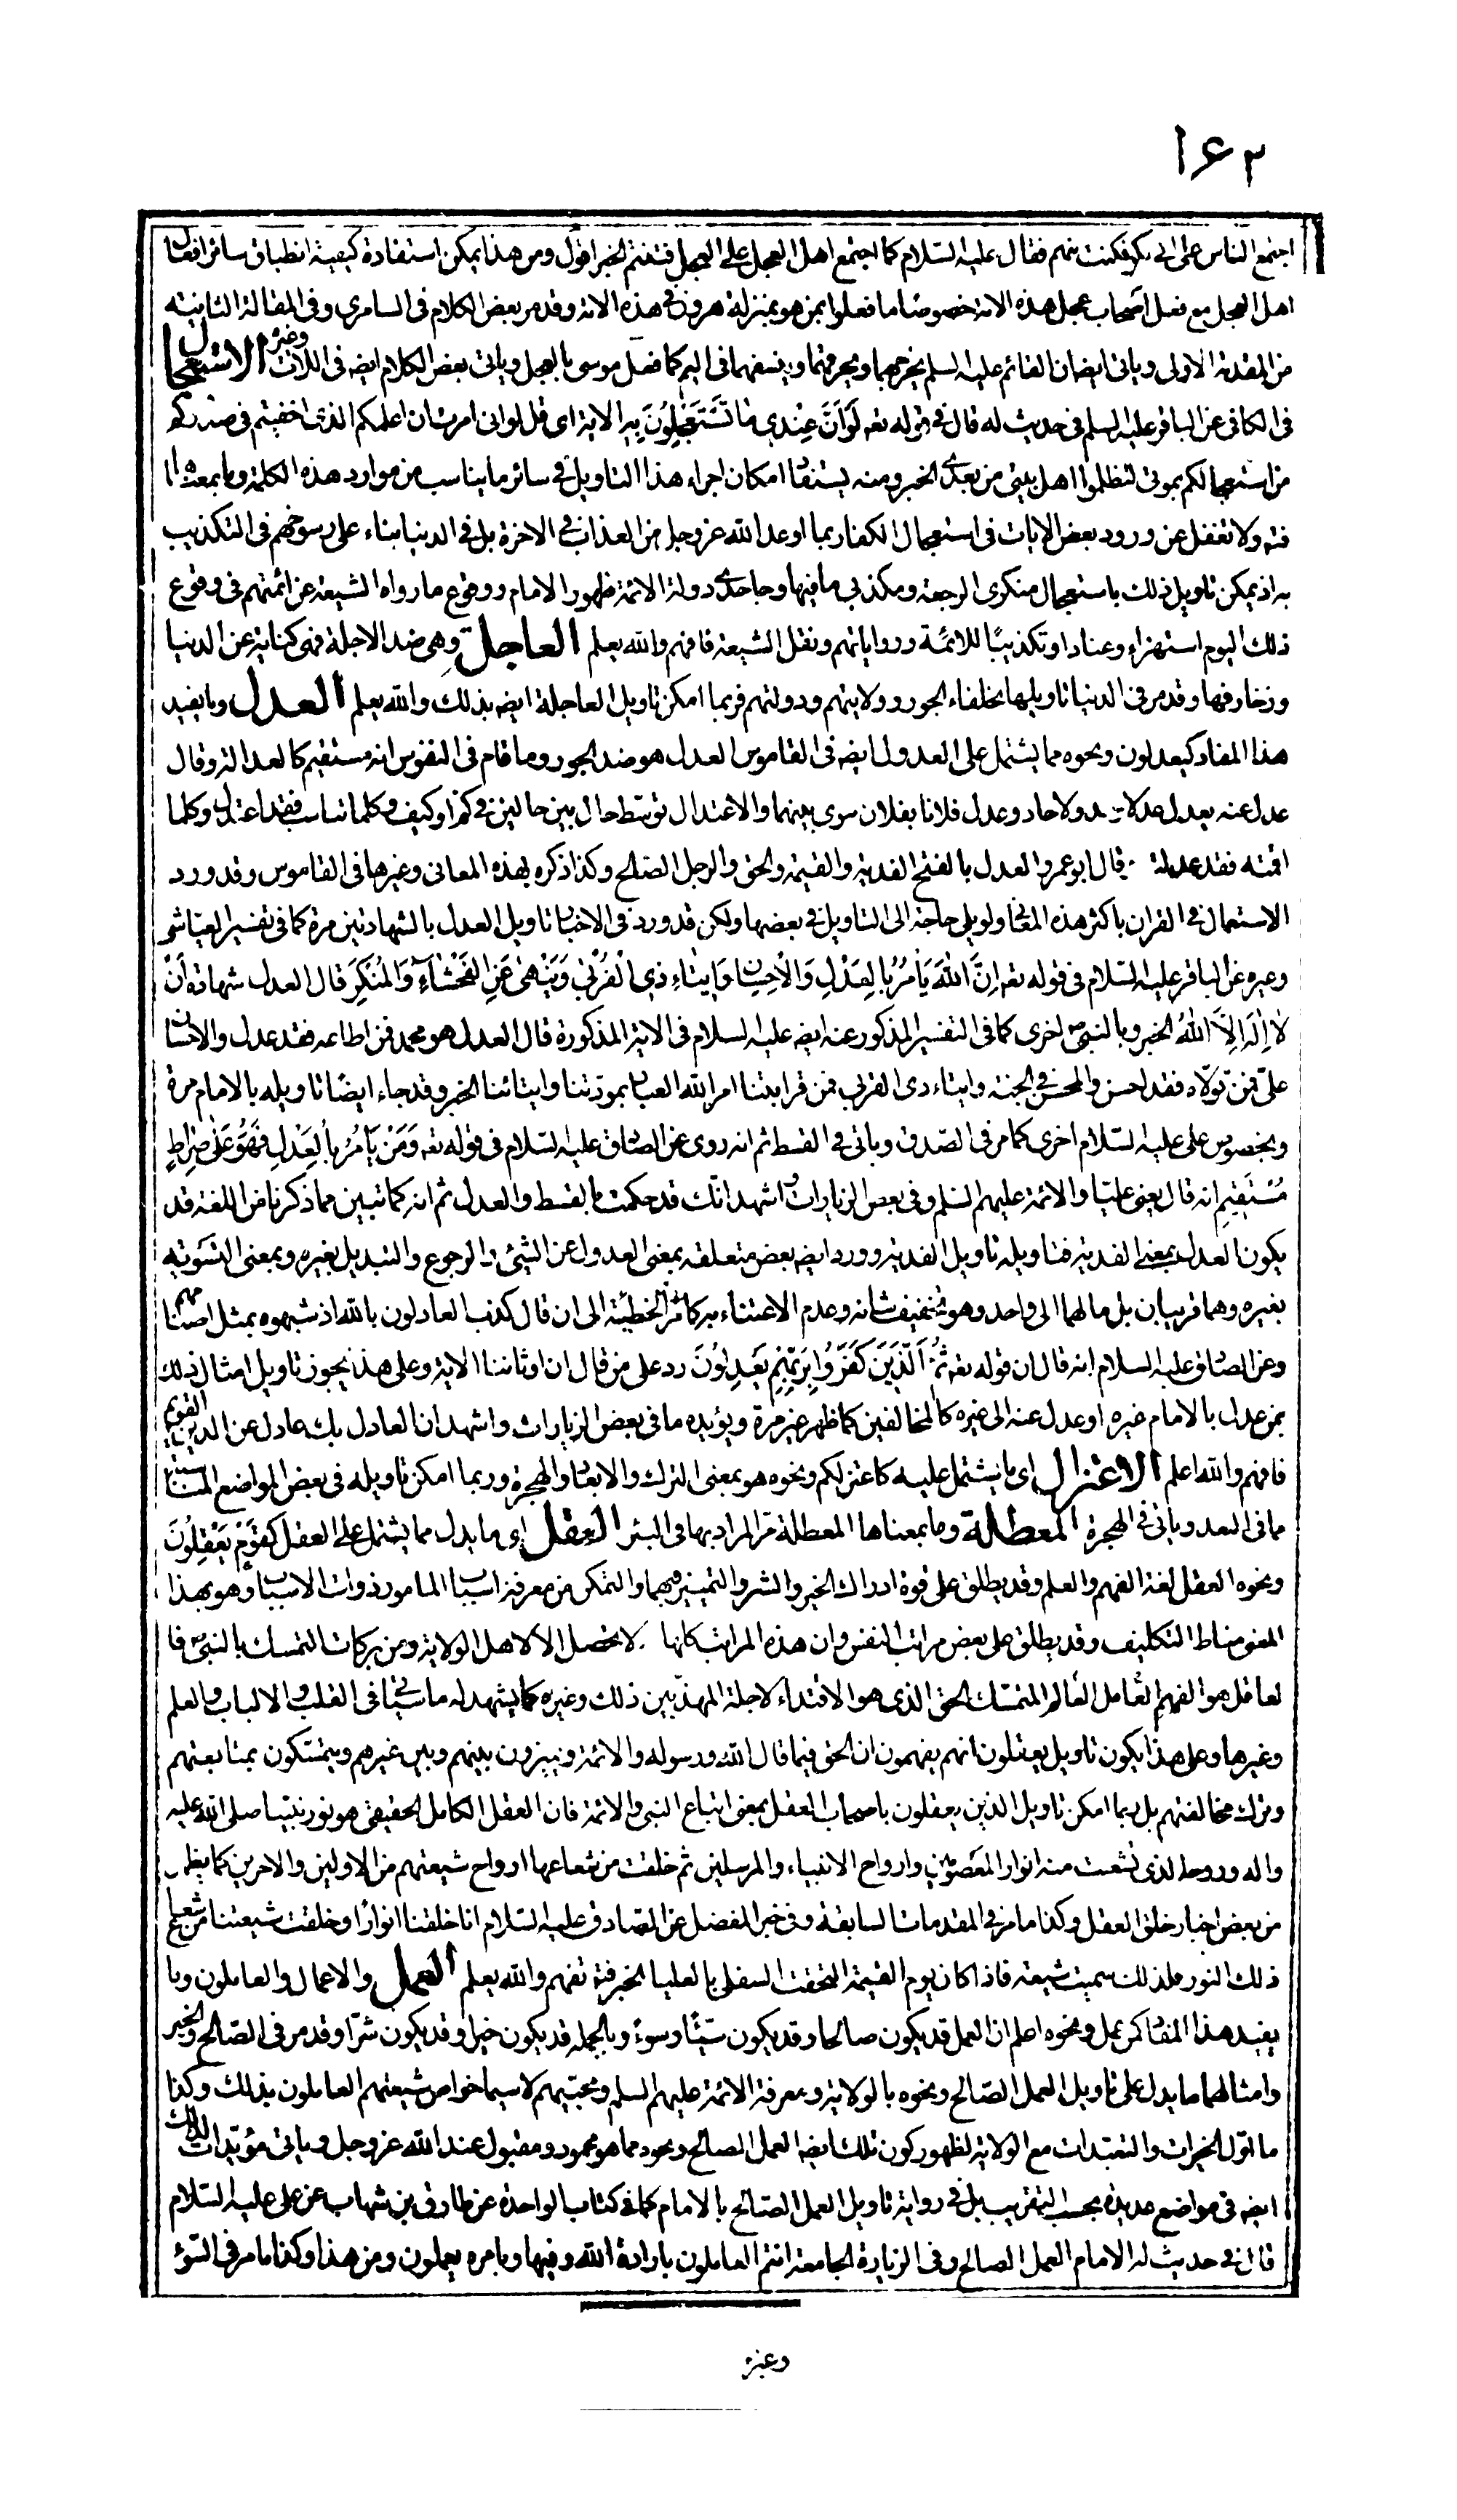 ١٦٢
اجتمع الناس على ابى بكر فكنت منهم فقال عليه السلام كما اجتمع اهل العجل على العجل فتفهم الخبر اقول ومن هذا يمكن استفادة كيفية انطباق سائر افعال
اهل العجل مع فعل اصحاب عجل هذه الامة خصوصا ما فعلوا بمن هو بمنزلة هرون فى هذه الامة وقد مر بعض الكلام فى السامرى وفى المقالة الثانية
من المقدمة الاولى وياتى ايضا ان القائم عليه السلم يخرجهما ويحرقهما وينسفهما فى اليم كما فعل موسى بالعجل وياتى بعض الكلام ايضه فى اللات وغيره الاستعجال
فى الكافى عن الباقر عليه السلم فى حديث له قال فى قوله تعه لَوْ اَنَّ عِنْدِي مٰا تَسْتَعْجِلُونَ بِهِ الاية اى قل لو انى امرت ان اعلمكم الذى اخفيتم فى صدوركم
من استعجالكم بموتى لتظلموا اهل بيتى من بعدى الخبر ومنه يستفاد امكان اجراء هذا التاويل فى سائر ما يناسب من موارد هذه الكلمة وما بمعناها
فتد ولا تغفل عن ورود بعض الايات فى استعجال الكفار بما اوعد الله عز وجل من العذاب فى الاخرة بل فى الدنيا بناء على رسوخهم فى التكذيب
به اذ يمكن تاويل ذلك باستعجال منكرى الرجعة ومكذبى ما فيها وجاحدى دولة الائمة وظهور الامام ووقوع ما رواه الشيعة عن ائمتهم فى وقوع
ذلك اليوم استهزاء وعنادا وتكذيبًا للائمّة ورواياتهم ونقل الشيعة فافهم والله يعلم العاجلة وهى ضد الاجلة فهى كناية عن الدنيا
وزخارفها وقد مر فى الدنيا تاويلها بخلفاء الجور وولايتهم ودولتهم فربما امكن تاويل العاجلة ايضه بذلك والله يعلم العدل وما يفيد
هذا المفاد كيعدلون ونحوه مما يشتمل على العدول ايضه فى القاموس العدل هو ضد الجور وما قام فى النفوس انه مستقيم كالعدالة وقال
عدل عنه يعدل عدلا وعدولا حاد وعدل فلانا بفلان سوى بينهما والاعتدال توسّط حال بين حالين فى كم او كيف وكلما تناسب فقد اعتدل وكلما
اقمته فقد عدلته قال ابو عمرو العدل بالفتح الفدية والقيمة والحق والرجل الصّالح وكذا ذكره بهذه المعانى وغيرها فى القاموس وقد ورد
الاستعمال فى القران باكثر هذه المعانى ولو بلى حاجة الى التاويل فى بعضها ولكن قد ورد فى الاخبار تاويل العدل بالشهادتين مرة كما فى تفسير العيّاشى
وغيره عن الباقر عليه السّلام فى قوله تعه اِنَّ اللهَ يَأْمُرُ بِالْعَدْلِ وَالْاِحْسٰانِ وَاِيتٰاءِ ذِي الْقُرْبىٰ وَيَنْهىٰ عَنِ الْفَحْشٰاءِ وَالْمُنْكَرِ قال العدل شهادة اَنْ
لاٰ اِلٰهَ اِلاَّ اللهُ الخبر وبالنبىّ اخرى كما فى التفسير المذكور عنه ايضه عليه السلام فى الاية المذكورة قال العدل هو محمد فمن اطاعه فقد عدل والاحسان
علىّ فمن تولّاه فقد احسن والمحسن فى الجنة وايتاء ذى القربى فمن قرابتنا امر الله العباد بمودّتنا وايتائنا الخبر وقد جاء ايضًا تاويله بالامام مرة
وبخصوص على عليه السّلام اخرى كما مر فى الصّدق وياتى فى القسط ثم انه روى عن الصادق عليه السّلام فى قوله تعه وَمَنْ يَأْمُرُ بِالْعَدْلِ وَهُوَ عَلىٰ صِرٰاطٍ
مُسْتَقِيمٍ انه قال يعنى عليّا والائمة عليهم السلم وفى بعض الزيارات واشهد انّك قد حكمت بالقسط والعدل ثم انه كما تبين مما ذكرنا من اللغة قد
يكون العدل بمعنى الفدية فتاويله تاويل الفدية وورد ايضه بعض متعلقه بمعنى العدول عن الشىء والرجوع والتبديل بغيره وبمعنى التسوية
بغيره وهما قريبان بل مالهما الى واحد وهو تخفيف شانه وعدم الاعتناء به كما مر فى الخطيئة الى ان قال كذب العادلون بالله اذ شبهوه بمثل اصنامهم
وعن الصادق عليه السلام انه قال ان قوله تعه ثُمَّ الَّذِينَ كَفَرُوا بِرَبِّهِمْ يَعْدِلُونَ رد على من قال ان اوثاننا الهة وعلى هذا يجوز تاويل امثال ذلك
بمن عدل بالامام غيره او عدل عنه الى غيره كالمخالفين كما ظهر غير مرة ويؤيده ما فى بعض الزيارات واشهد ان العادل بك عادل عن الدين القويم
فافهم والله اعلم الاعتزال اى ما يشتمل عليه كاعتزلكم ونحوه هو بمعنى الترك والابعاد والهجرة وربما امكن تاويله فى بعض المواضع المناسبة
مما فى البعد وياتى فى الهجرة المعطلة وما بمعناها المعطلة مرّ المراد بها فى البئر العقل اى ما يدل مما يشتمل على العقل كقَوْمٍ يَعْقِلُونَ
ونحوه العقل لغة الفهم والعلم وقد يطلق على قوة ادراك الخير والشر والتمييز بينهما والتمكن من معرفة اسباب المامور وذوات الاسباب وهو بهذا
المعنى مناط التكليف وقد يطلق على بعض مراتب النفس وان هذه المراتب كلها لا يحصل الا لاهل الولاية ومن بركات التمسك بالنبىّ فا
لعاقل هو الفهيم العامل العالم المتمسّك بالحق الذى هو الاقتداء لاجلة المهذّبين ذلك وغيره كما يشهد له ما سياتى فى القلب والالباب والعلم
وغيرها وعلى هذا يكون تاويل يعقلون انهم يفهمون ان الحق فيما قال الله ورسوله والائمة ويميزون بينهم وبين غيرهم ويتمسّكون بمتابعتهم
وترك مخالفتهم بل ربما امكن تاويل الذين يعقلون باصحاب العقل بمعنى اتباع النبى والائمة فان العقل الكامل الحقيقى هو نور نبيّنا صلى الله عليه
واله وروحه الذى تشعبت منه انوار المعصومين وارواح الانبياء والمرسلين ثم خلقت من شعاعها ارواح شيعتهم من الاولين والاخرين كما يظهر
من بعض اخبار خلق العقل وكذا ما مر فى المقدمات السابقة وفى خبر المفضل عن الصادق عليه السّلام انا خلقنا انوارًا وخلقت شيعتنا من شعاع
ذلك النور فلذلك سميت شيعة فاذا كان يوم القيمة التحقت السفلى بالعليا الخبر فتد تفهم والله يعلم العمل والاعمال والعاملون وما
يفيد هذا المفاد كمن يعمل ونحوه اعلم ان العمل قد يكون صالحا وقد يكون سيّئًا وسوءً وبالجملة قد يكون خيرا وقد يكون شرّا وقد مر فى الصّالح والخير
وامثالهما ما يدل على تاويل العمل الصّالح ونحوه بالولاية وبمعرفة الائمة عليهم السلم ومحبّتهم لا سيما خواص شيعتهم العاملون بذلك وكذا
ما اوّل الخيرات والتعبّدات مع الولاية لظهور كون تلك ايضه العمل الصالح ونحوه مما هو محمود ومقبول عند الله عز وجل وياتى مؤيّدات لذلك
ايضه فى مواضع عديدة بحسب التقريب بل فى رواية تاويل العمل الصّالح بالامام كما فى كتاب الواحدة عن طارق بن شهاب عن على عليه السّلام
قال فى حديث له الامام العمل الصالح وفى الزيارة الجامعة انتم العاملون بارادة الله وفيها وبامره يعملون ومن هذا وكذا ما مر فى السّوء
وغيره